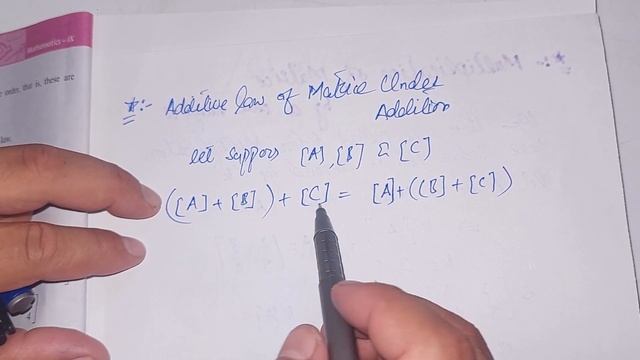 Mathematics - IX
e order, that is, these are
law.
*:- Additive law of Matrice Under
Addition
let suppors [A], [B] & [C]
([A] + [B]) + [C] = [A] + ([B] + [C])